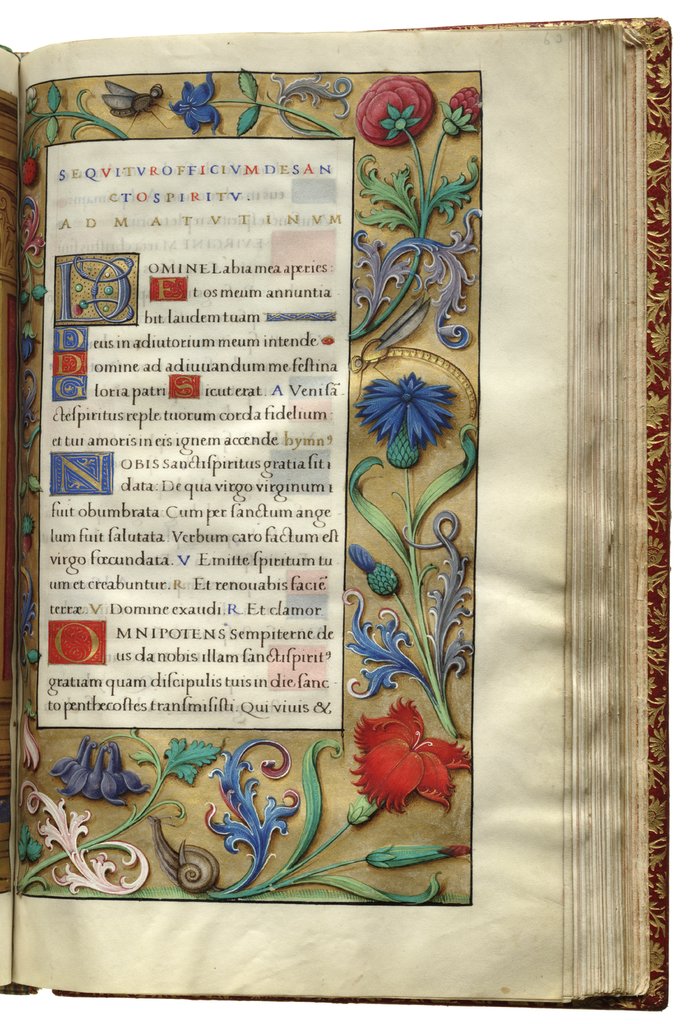 SEQVITVROFFICIVMDESAN
CTOSPIRITV.
AD MATVTINVM
DOMINE Labia mea aperies:
Et os meum annuntia
bit laudem tuam
Deus in adiutorium meum intende
Domine ad adiuuandum me festina
Gloria patri Sicut erat. A Veni sā
cte spiritus reple tuorum corda fidelium:
et tui amoris in eis ignem accende hymnꝰ
NOBIS Sancti spiritus gratia sit i
data: De qua virgo virginum i
fuit obumbrata: Cum per sanctum ange
lum fuit salutata. Verbum caro factum est
virgo fœcundata. V Emitte spiritum tu
um et creabuntur. R. Et renouabis faciē
terræ. V Domine exaudi. R. Et clamor
OMNIPOTENS Sempiterne de
us da nobis illam sancti spiritꝰ
gratiam quam discipulis tuis in die sanc
to penthecostes transmisisti. Qui viuis &